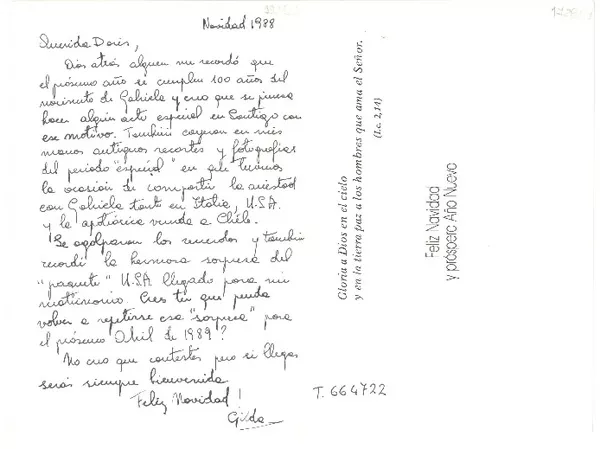 Navidad 1988
Querida Doris,
Días atrás alguien me recordó que
el próximo año se cumplen 100 años del
nacimiento de Gabriela y creo que se piensa
hacer algún acto especial en Santiago con
ese motivo. También cayeron en mis
manos antiguos recortes y fotografías
del período "especial" en que tuvimos
la ocasión de compartir la amistad
con Gabriela tanto en Italia, U.S.A.
y la apoteósica venida a Chile.
Se agolparon los recuerdos y también
recordé la hermosa sorpresa del
"paquete" U.S.A llegado para mi
matrimonio. Crees tú que pueda
volver a repetirse esa "sorpresa" para
el próximo Abril de 1989?
No creo que contestes pero si llegas
serás siempre bienvenida.
Feliz Navidad!
Gilda
Gloria a Dios en el cielo
y en la tierra paz a los hombres que ama el Señor.
(Lc. 2,14)
Feliz Navidad
y próspero Año Nuevo
T. 664722